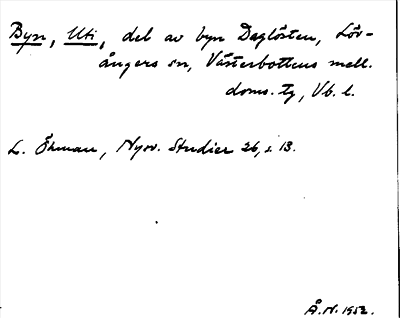 Byn, Uti, del av byn Daglösten, Löv-
ångers sn, Västerbottens mell.
doms. tg, Vb. l.
L. Öhman, Nysv. Studier 26, s 13.
Å. N. 1952.